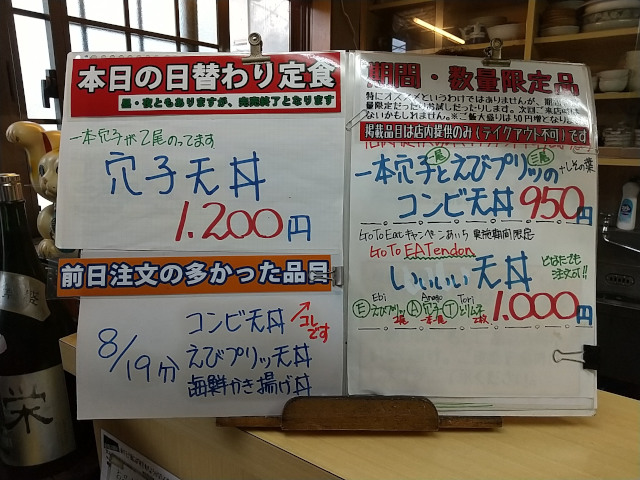 本日の日替わり定食
昼・夜ともありますが、完売終了となります
一本穴子が乙尾のってます
穴子天丼
1.200円
前日注文の多かった品目
8/19分
コンビ天丼
コレです
えびプリッ天丼
海鮮かき揚げ丼
期間・数量限定品
特にオススメというわけではありませんが、期
量限定だった
ないかもしれません。※ご飯大盛りは50円増となり
掲載品目は店内提供のみ(テイクアウト不可)です
一本穴子とえびプリッの
一尾
三尾
+しその葉
コンビ天丼950円
GoToEatキャンペーンあいち 実施期間限定
GoTo EATendon
いいいい天丼
どなたでも
注文可!!
Ebi
Anago
Tori
Eえびプリッ A穴子 Tとりムネ
2尾
一本・尾
2枚
1.000円
栄